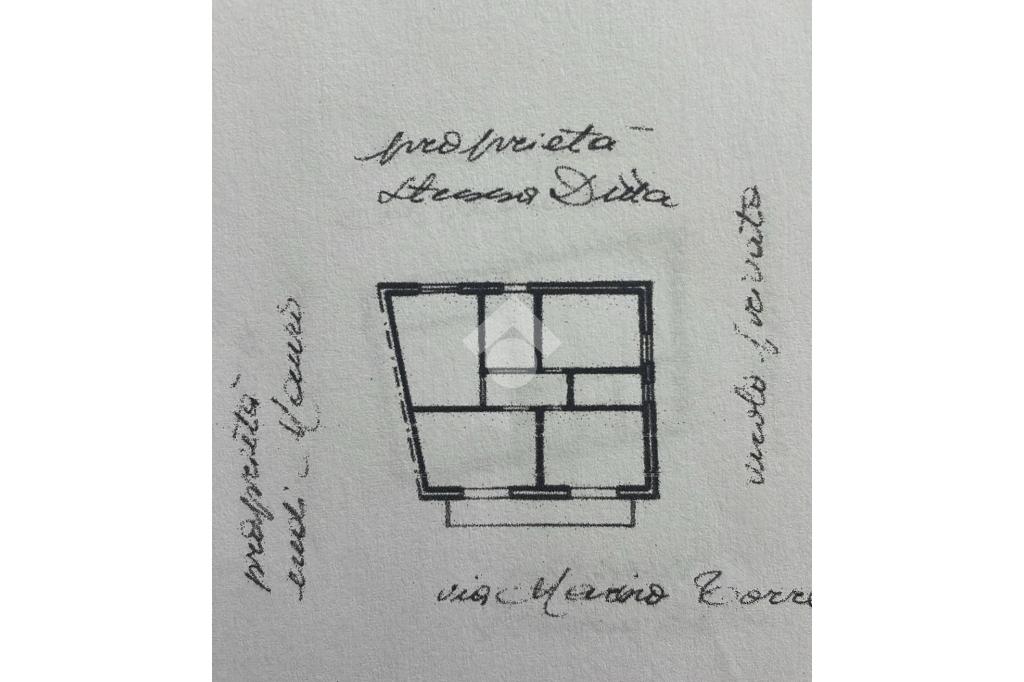 proprietà
stessa Ditta
vicolo privato
proprietà
eredi
via Marino Torre